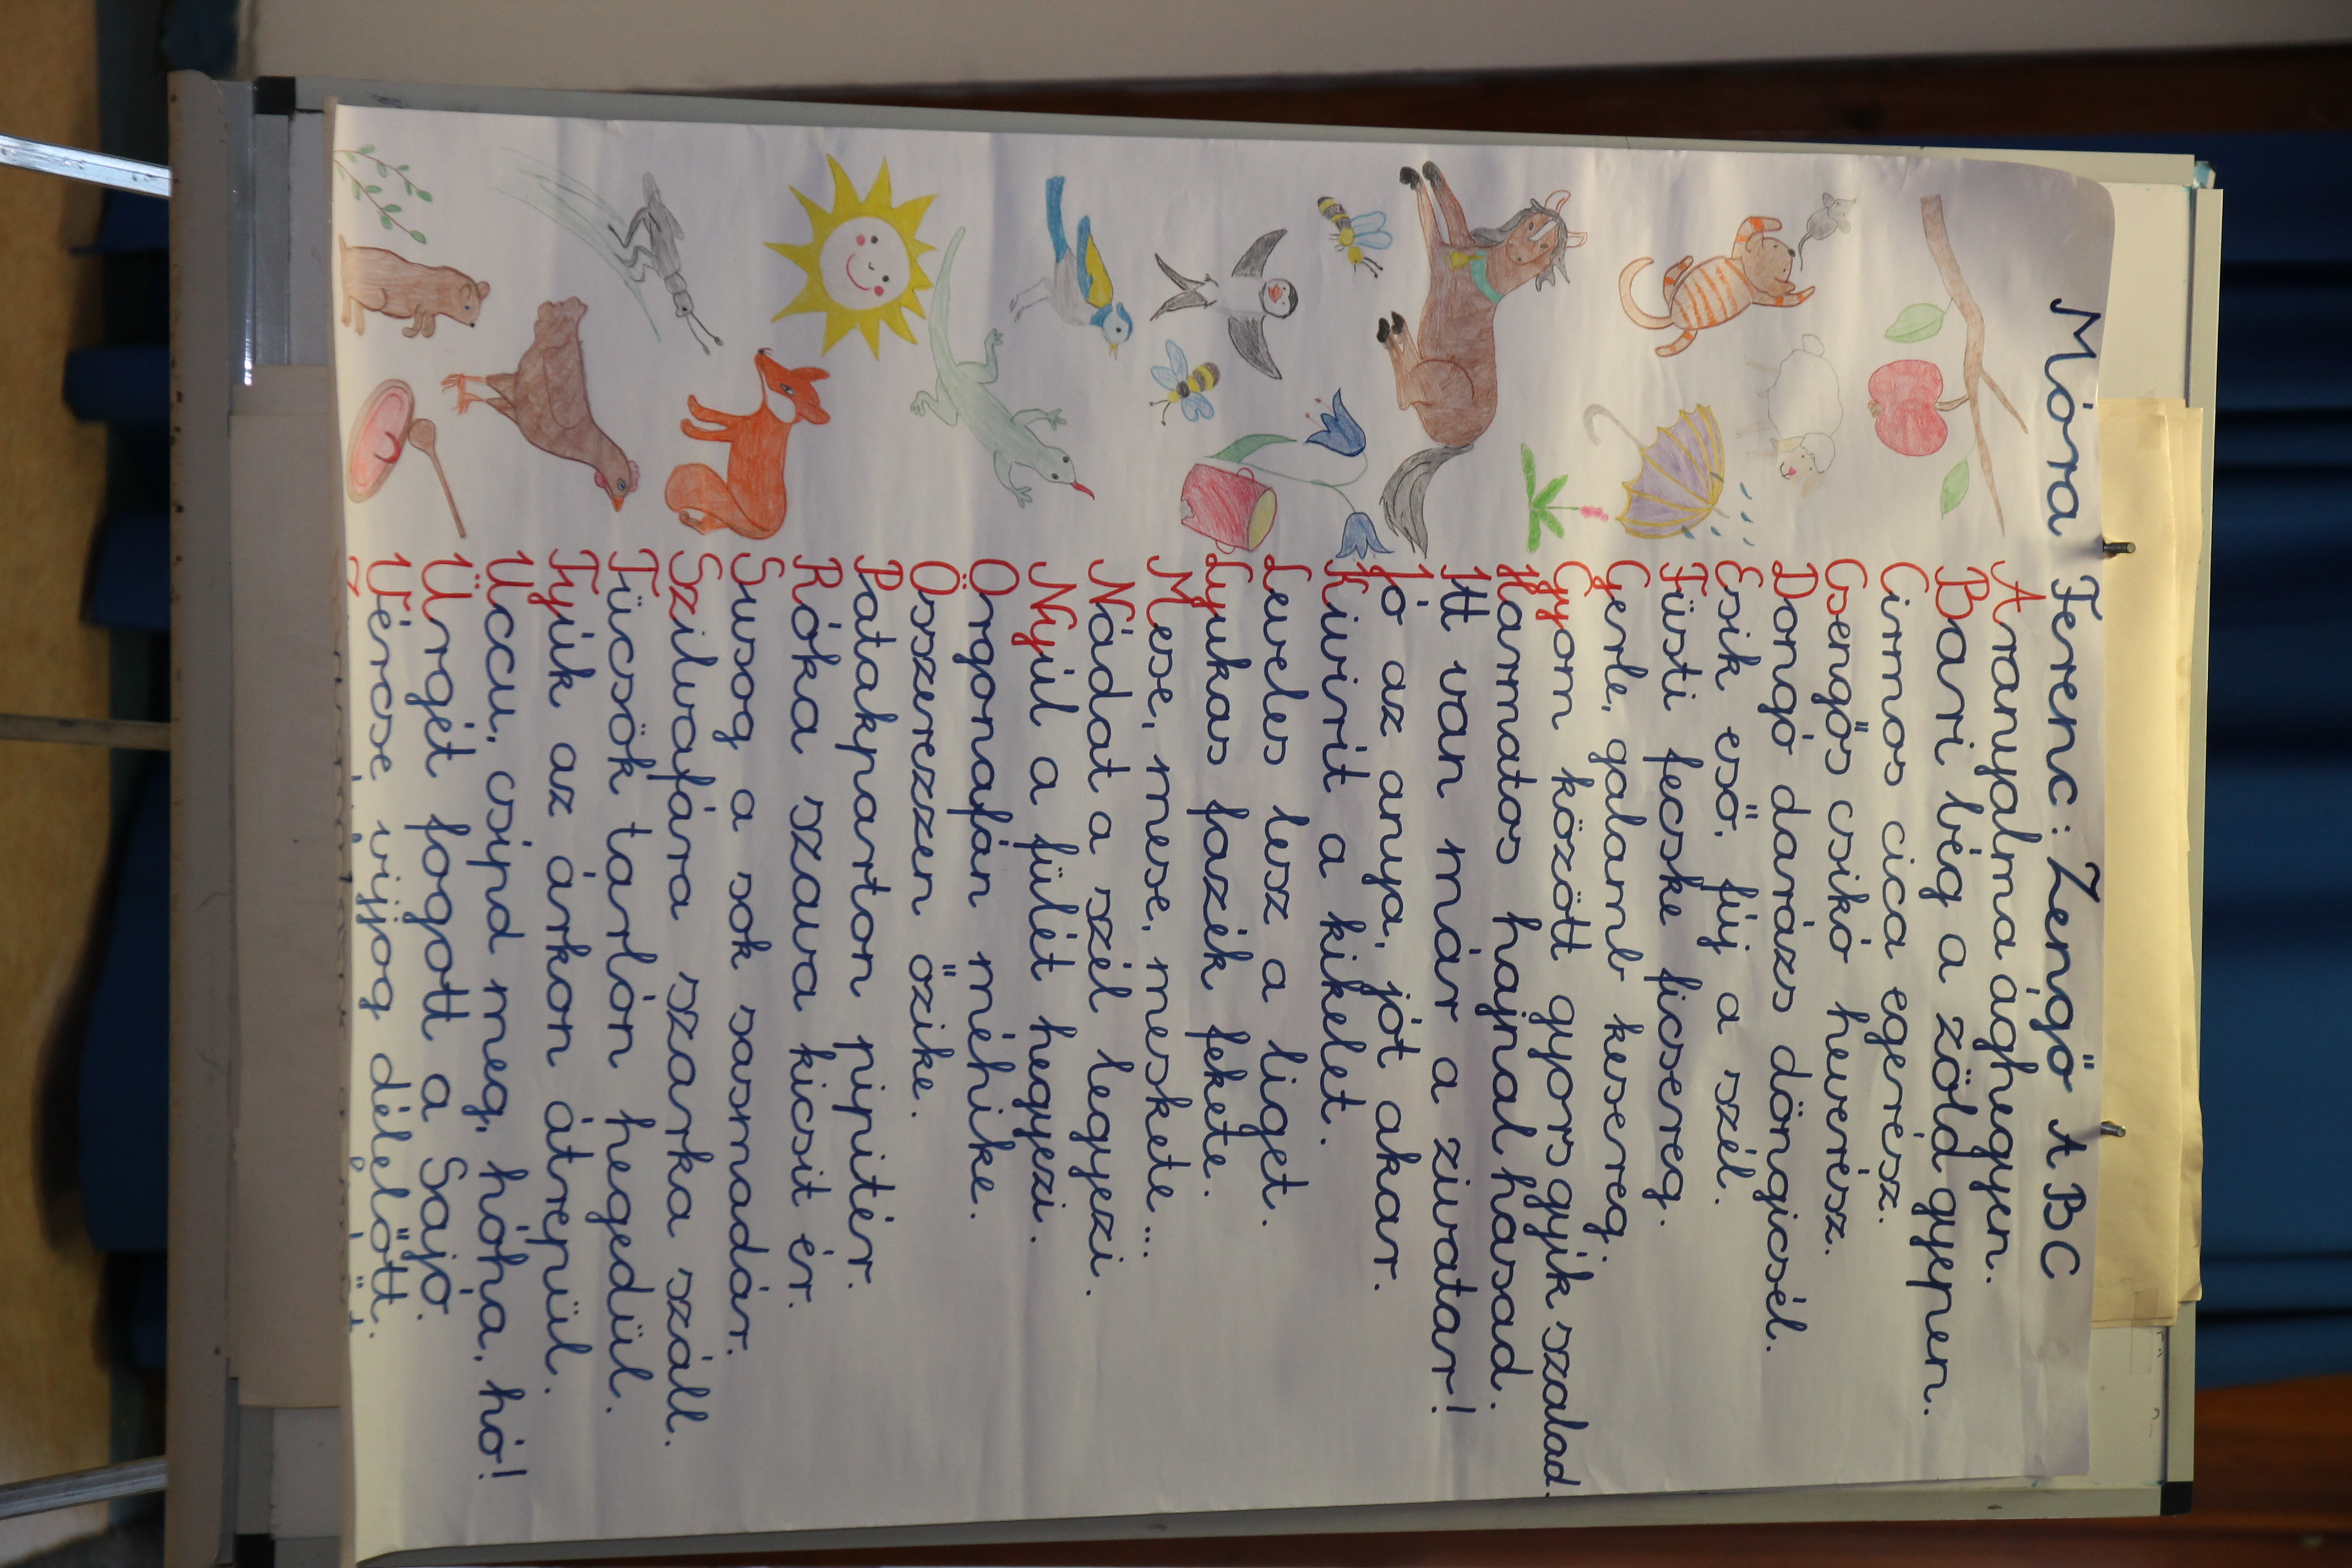 Móra Ferenc: Zengő ABC
Aranyalma ághegyen.
Bari bég a zöld gyepen.
Cirmos cica egerész.
Csengős csikó heverész.
Dongó darázs döngicsél.
Esik eső, fúj a szél.
Füsti fecske ficsereg.
Gerle, galamb kesereg.
Gyom között gyors gyík szalad.
Harmatos hajnal hasad.
Itt van már a zivatar!
Jó az anya, jót akar.
Kivirít a kikelet.
Leveles lesz a liget.
Lyukas fazék fekete.
Mese, mese, meskete...
Nádat a szél legyezi.
Nyúl a fülét hegyezi.
Orgonafán méhike.
Összerezzen őzike.
Patakparton pipitér.
Róka szava kicsit ér.
Susog a sok sasmadár.
Szilvafára szarka száll.
Tücsök tarlón hegedül.
Tyúk az árkon átrepül.
Uccu, csípd meg, hóha, hó!
Ürgét fogott a Sajó.
Vércse vijjog délelőtt.